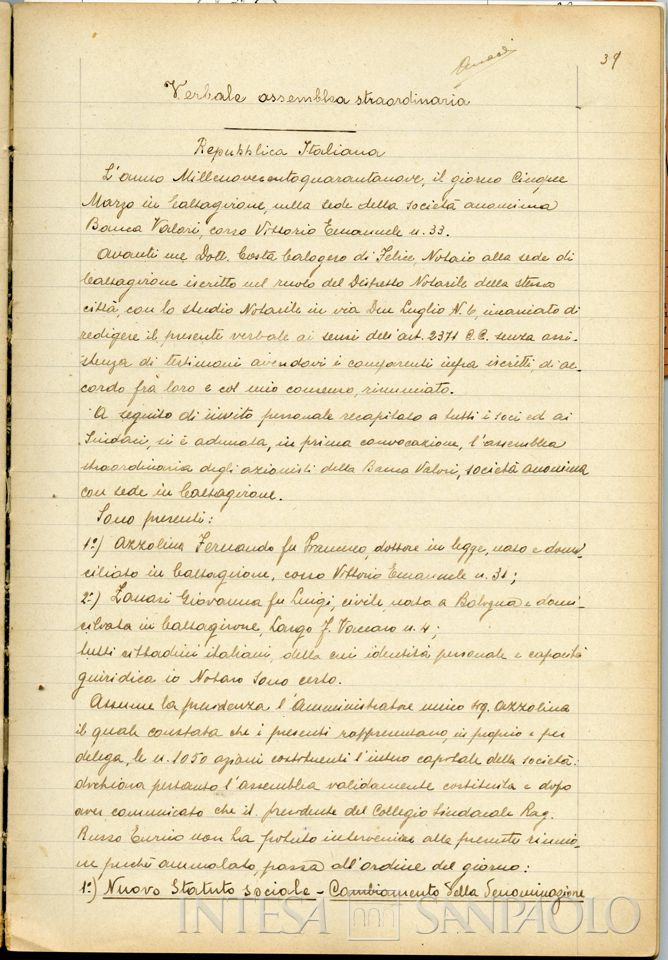 39
Verbale assemblea straordinaria
Repubblica Italiana
L'anno Millenovecentoquarantanove, il giorno Cinque
Marzo in Caltagirone, nella sede della società anonima
Banca Valori, corso Vittorio Emanuele n. 33.
Avanti me Dott. Costa Calogero di Felice, Notaio alla sede di
Caltagirone iscritto nel ruolo del Distretto Notarile della stessa
città, con lo studio Notarile in via Due Luglio N. 6, incaricato di
redigere il presente verbale ai sensi dell'art. 2371 C.C. senza assi-
stenza di testimoni avendovi i comparenti infra iscritti di ac-
cordo frà loro e col mio consenso, rinunciato.
A seguito di invito personale recapitato a tutti i soci ed ai
Sindaci, si è adunata, in prima convocazione, l'assemblea
straordinaria degli azionisti della Banca Valori, società anonima
con sede in Caltagirone.
Sono presenti:
1°) Azzolina Fernando fu Francesco, dottore in legge, nato e domi-
ciliato in Caltagirone, corso Vittorio Emanuele n. 31;
2°) Zanari Giovanna fu Luigi, civile, nata a Bologna e domi-
ciliata in Caltagirone, Largo F. Vaccaro n. 4;
tutti cittadini italiani, della cui identità personale e capacità
giuridica io Notaro sono certo.
Assume la presidenza l'Amministratore unico Sig. Azzolina
il quale constata che i presenti rappresentano, in proprio e per
delega, le n. 1050 azioni costituenti l'intero capitale della società:
dichiara pertanto l'assemblea validamente costituita e dopo
aver comunicato che il presidente del Collegio Sindacale Rag.
Russo Enrico non ha potuto intervenire alla presente riunio-
ne perchè ammalato, passa all'ordine del giorno:
1°) Nuovo Statuto sociale - Cambiamento della Denominazione
INTESA SANPAOLO